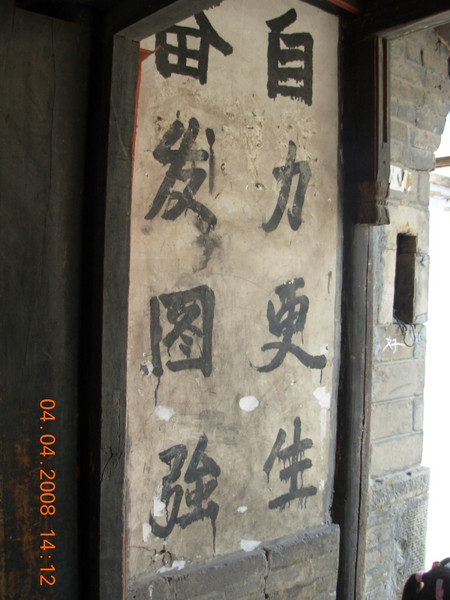 自力更生
奋发图强
好
04.04.2008 14:12